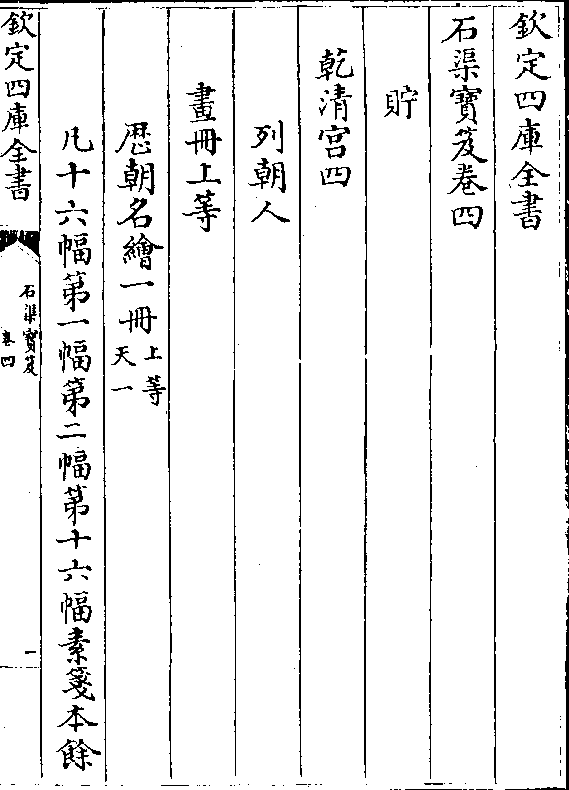 欽定四庫全書
石渠寶笈卷四
貯
乾清宫四
列朝人
畫冊上等
歷朝名繪一冊上等天一
凡十六幅第一幅第二幅第十六幅素箋本餘
欽定四庫全書
石渠寶笈
卷四
一